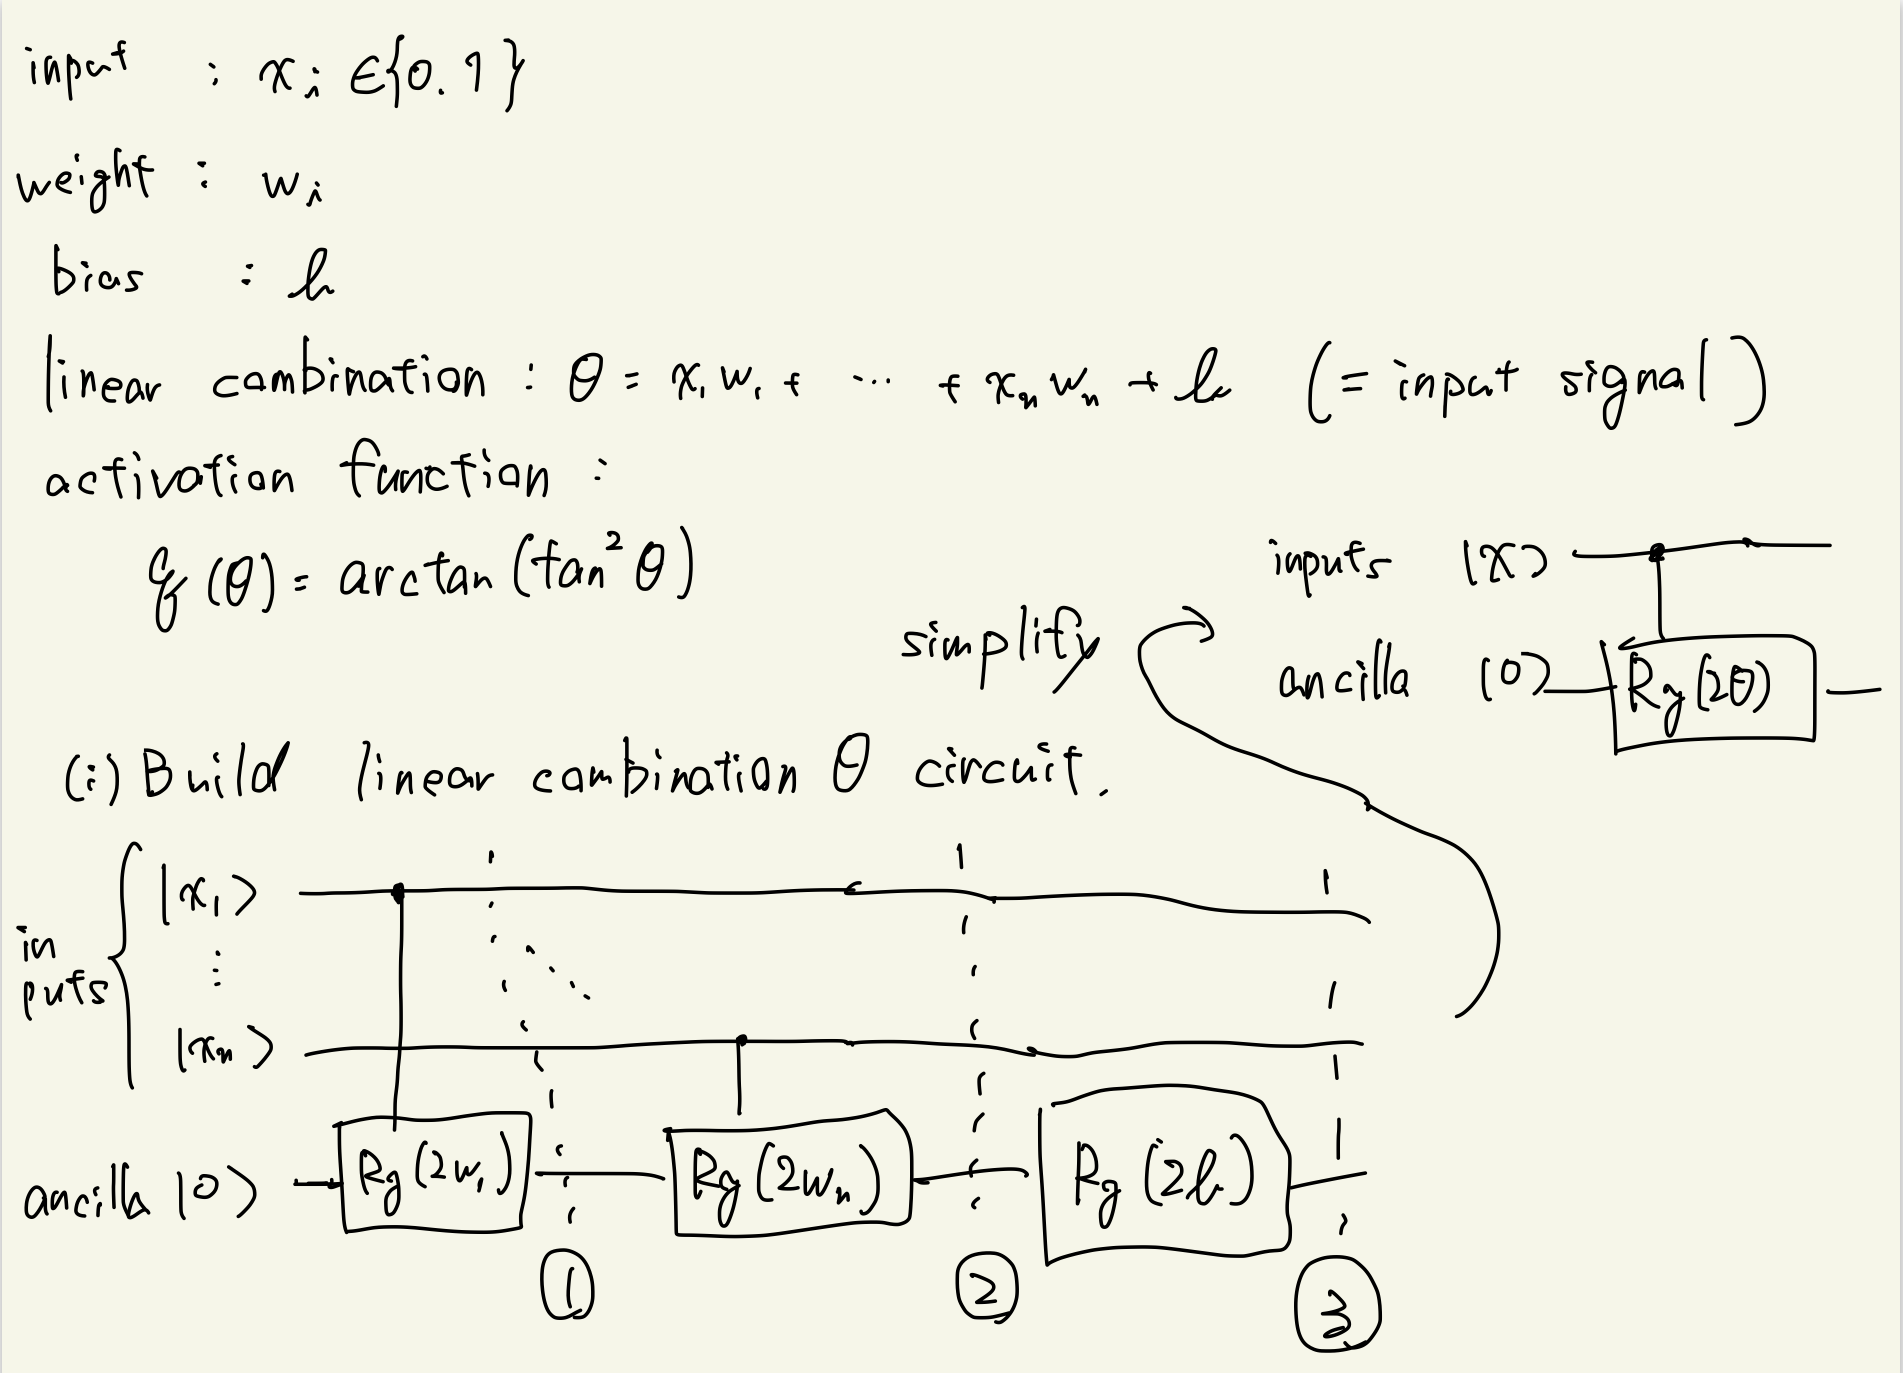 input : xᵢ ∈{0.1}
weight : wᵢ
bias : b
linear combination : θ = x₁w₁ + ... + xₙwₙ + b (= input signal)
activation function :
q(θ) = arctan(tan²θ)
simplify
inputs |x⟩
ancilla |0⟩ Ry(2θ)
(i) Build linear combination θ circuit.
inputs
|x₁⟩
⋮
|xₙ⟩
ancilla |0⟩ Ry(2w₁) Ry(2wₙ) Ry(2b)
① ② ③